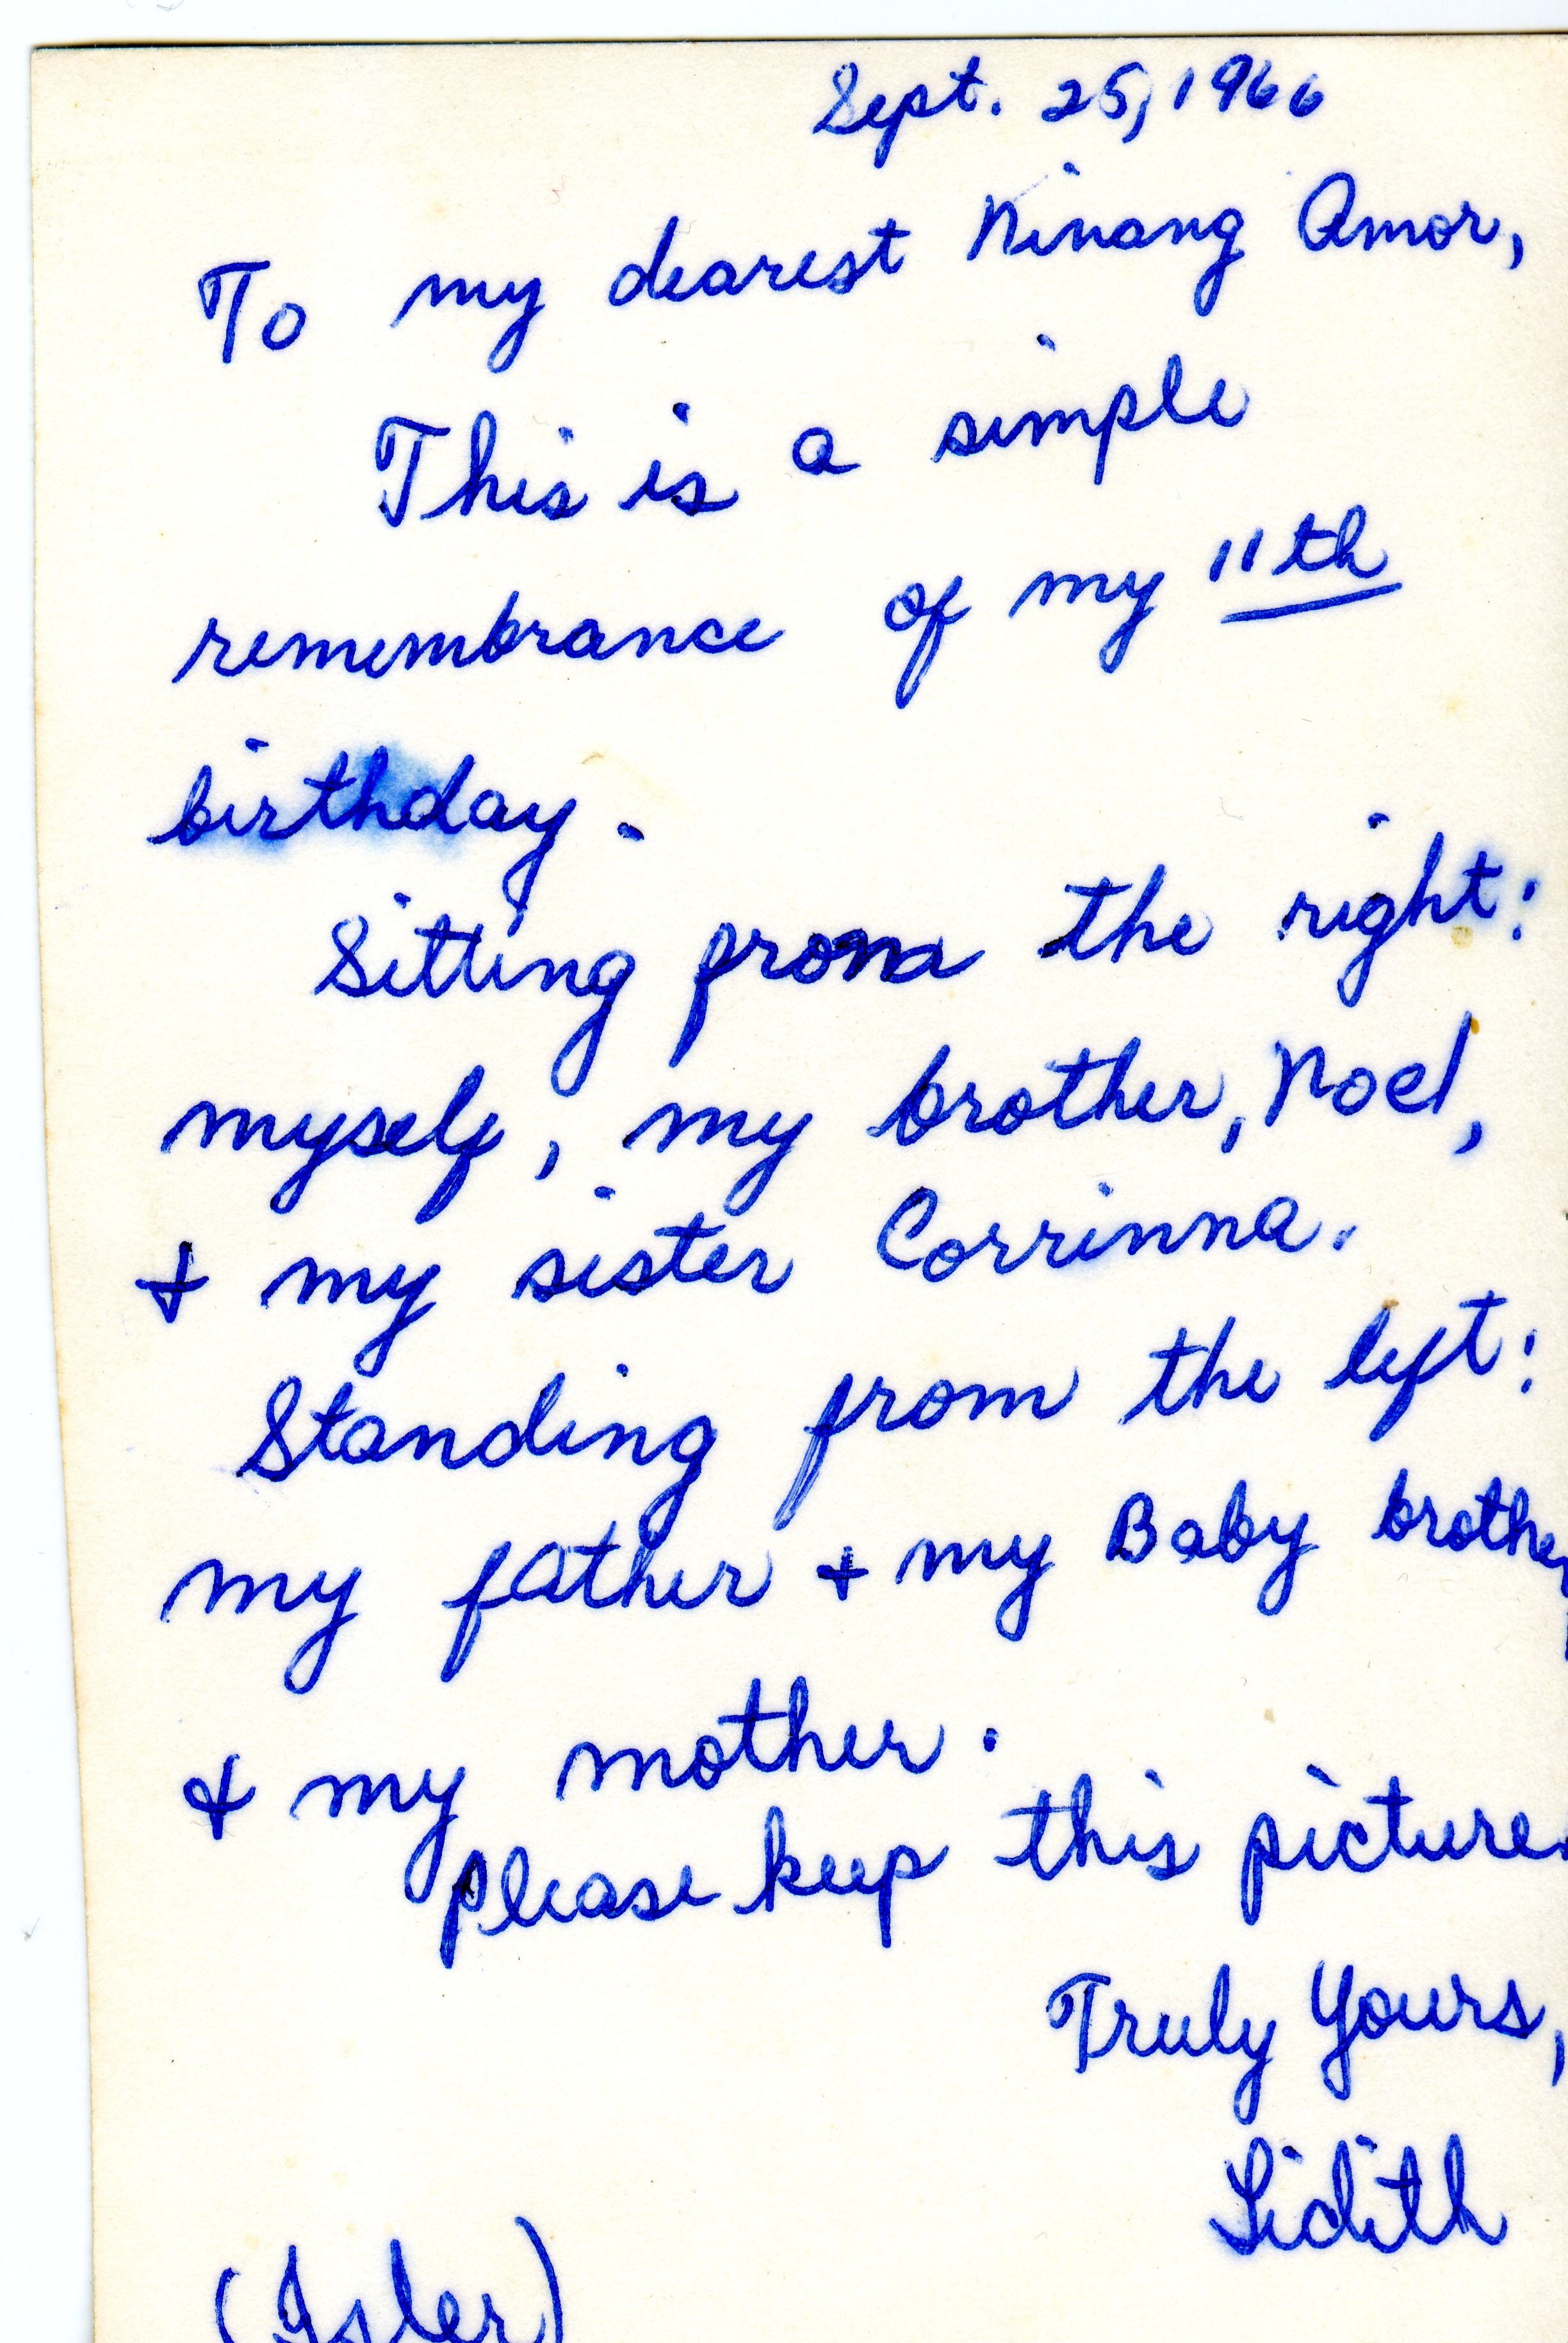 Sept. 25, 1966
To my dearest Ninang Amor,
This is a simple
remembrance of my 11th
birthday.
Sitting from the right:
myself, my brother, Noel,
+ my sister Corrinna.
Standing from the left:
my father + my Baby brother
+ my mother.
Please keep this picture
Truly Yours,
Lidith